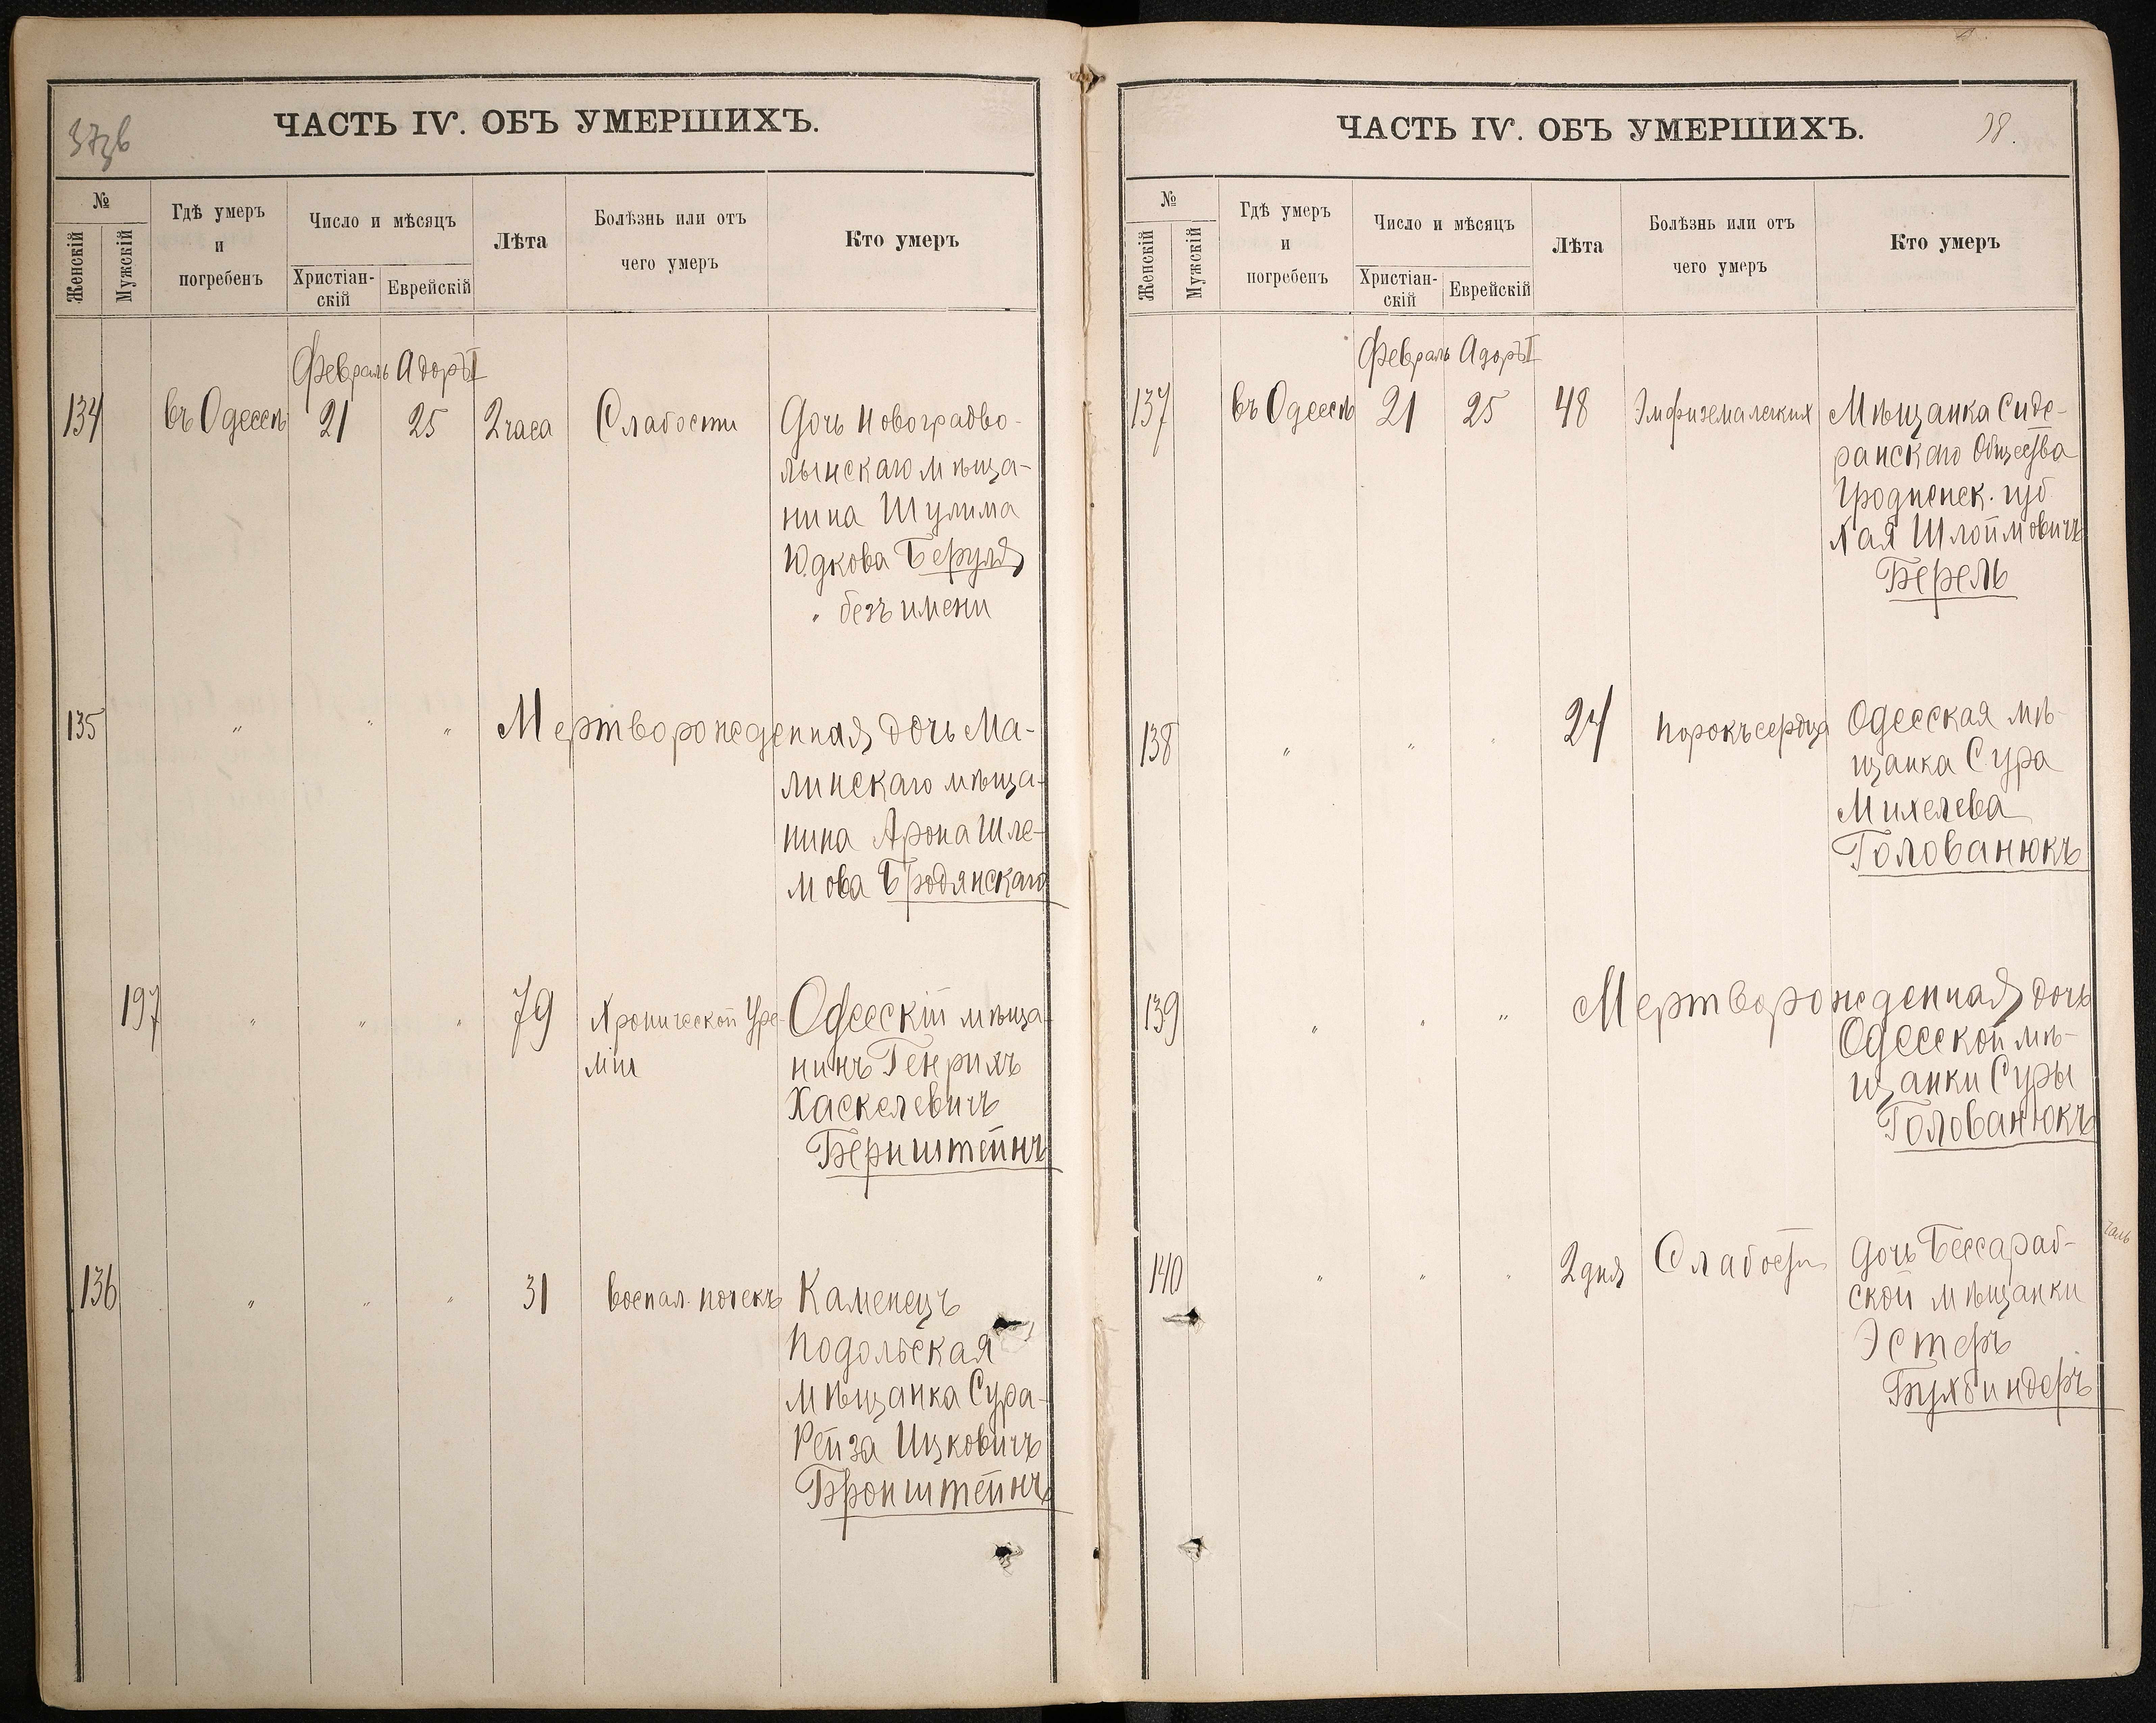 37зв
ЧАСТЬ IV. ОБЪ УМЕРШИХЪ.
№
Женскій
Мужскій
Гдѣ умеръ
и
погребенъ
Число и мѣсяцъ
Христіан-
скій
Еврейскій
Лѣта
Болѣзнь или отъ
чего умеръ
Кто умеръ
Февраль Адоръ II
134 въ Одессѣ 21 25 2 часа Слабости Дочь Новоградво-
лынскаго мѣща-
нина Шулима
Юдкова Беруля
" безъ имени
135 " " " Мертворожденная дочь Ма-
линскаго мѣща-
нина Арона Шле-
мова Бродянскаго
197 " " " 79 Хронической Уре- Одесскій мѣща-
міи нинъ Генрихъ
Хаскелевичъ
Бернштейнъ
136 " " " 31 воспал. почекъ Каменецъ
Подольская
мѣщанка Сура-
Рейза Ицковичъ
Бронштейнъ
ЧАСТЬ IV. ОБЪ УМЕРШИХЪ.
38.
№
Женскій
Мужскій
Гдѣ умеръ
и
погребенъ
Число и мѣсяцъ
Христіан-
скій
Еврейскій
Лѣта
Болѣзнь или отъ
чего умеръ
Кто умеръ
Февраль Адоръ II
137 въ Одессѣ 21 25 48 Эмфизема легких Мѣщанка Сиде-
ранскаго Общества
Гродненск. губ
Хая Шлоймовичъ
Берель
138 " " " 24 порокъ сердца Одесская мѣ-
щанка Сура
Михелева
Голованюкъ
139 " " " Мертворожденная дочь
Одесской мѣ-
щанки Суры
Голованюкъ
140 " " " 2 дня Слабости Дочь Бессараб-
ской мѣщанки
Эстеръ
Бухбиндеръ